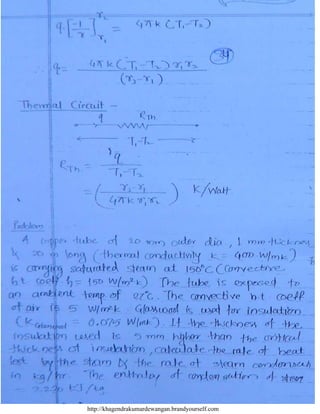 q [-1/r]r₁^r₂ = 4πk (T₁-T₂)
34
q = 4πk (T₁-T₂) r₁r₂ / (r₂-r₁)
Thermal Circuit -
q RTh
T₁-T₂
RTh = q / T₁-T₂
= (r₂-r₁ / 4πk r₁r₂) K/Watt
Problem
A copper tube of 20 mm outer dia, 1 mm thickness
& 20 m long (thermal conductivity K = 400 W/mk)
is carrying saturated steam at 150°C (Convective
h.t coeff = 150 W/m²k) The tube is exposed to
an ambient temp. of 27°C. The convective h.t coeff
of air is 5 W/m²k. Glasswool is used for insulation
(K glasswool = 0.075 W/mk). If the thickness of the
insulation used is 5 mm higher than the critical
thickness of insulation, calculate the rate of heat
lost by the steam & the rate of steam condensation
in kg/hr. The enthalpy of condensation of steam
= 2230 KJ/kg
http://khagendrakumardewangan.brandyourself.com